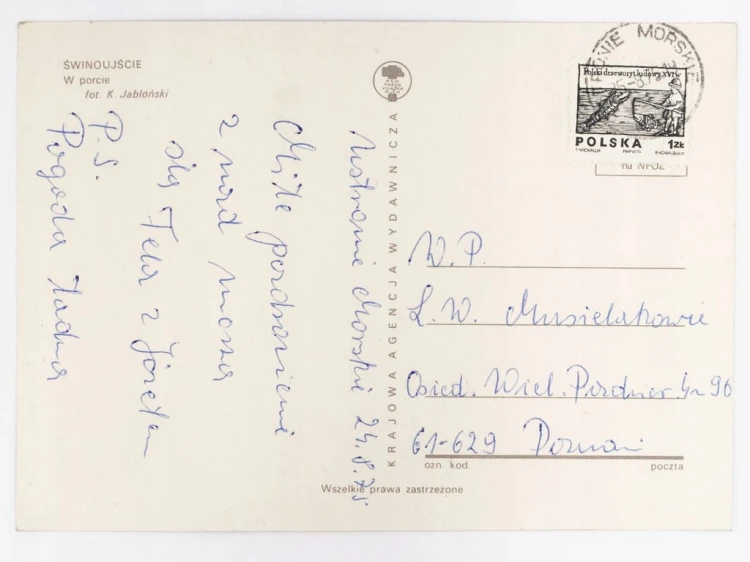 ŚWINOUJŚCIE
W porcie
fot. K. Jabłoński
Ustronie Morskie 24.8.75.
Miłe pozdrowienia
z nad morza
ślą Tela z Józefem
P.S.
Pogoda ładna
KRAJOWA AGENCJA WYDAWNICZA
ONIE MORSKIE
Polski drzeworyt ludowy XVI w
POLSKA 1ZŁ
W.P.
L.W. Musielakowie
Osied. Wiel. Poznań
61-629 Poznań
ozn. kod. poczta
Wszelkie prawa zastrzeżone